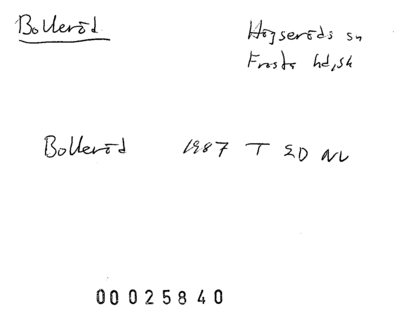 Bolleröd
Högseröds sn
Frosta hd, sk
Bolleröd 1987 T ED NL
00025840